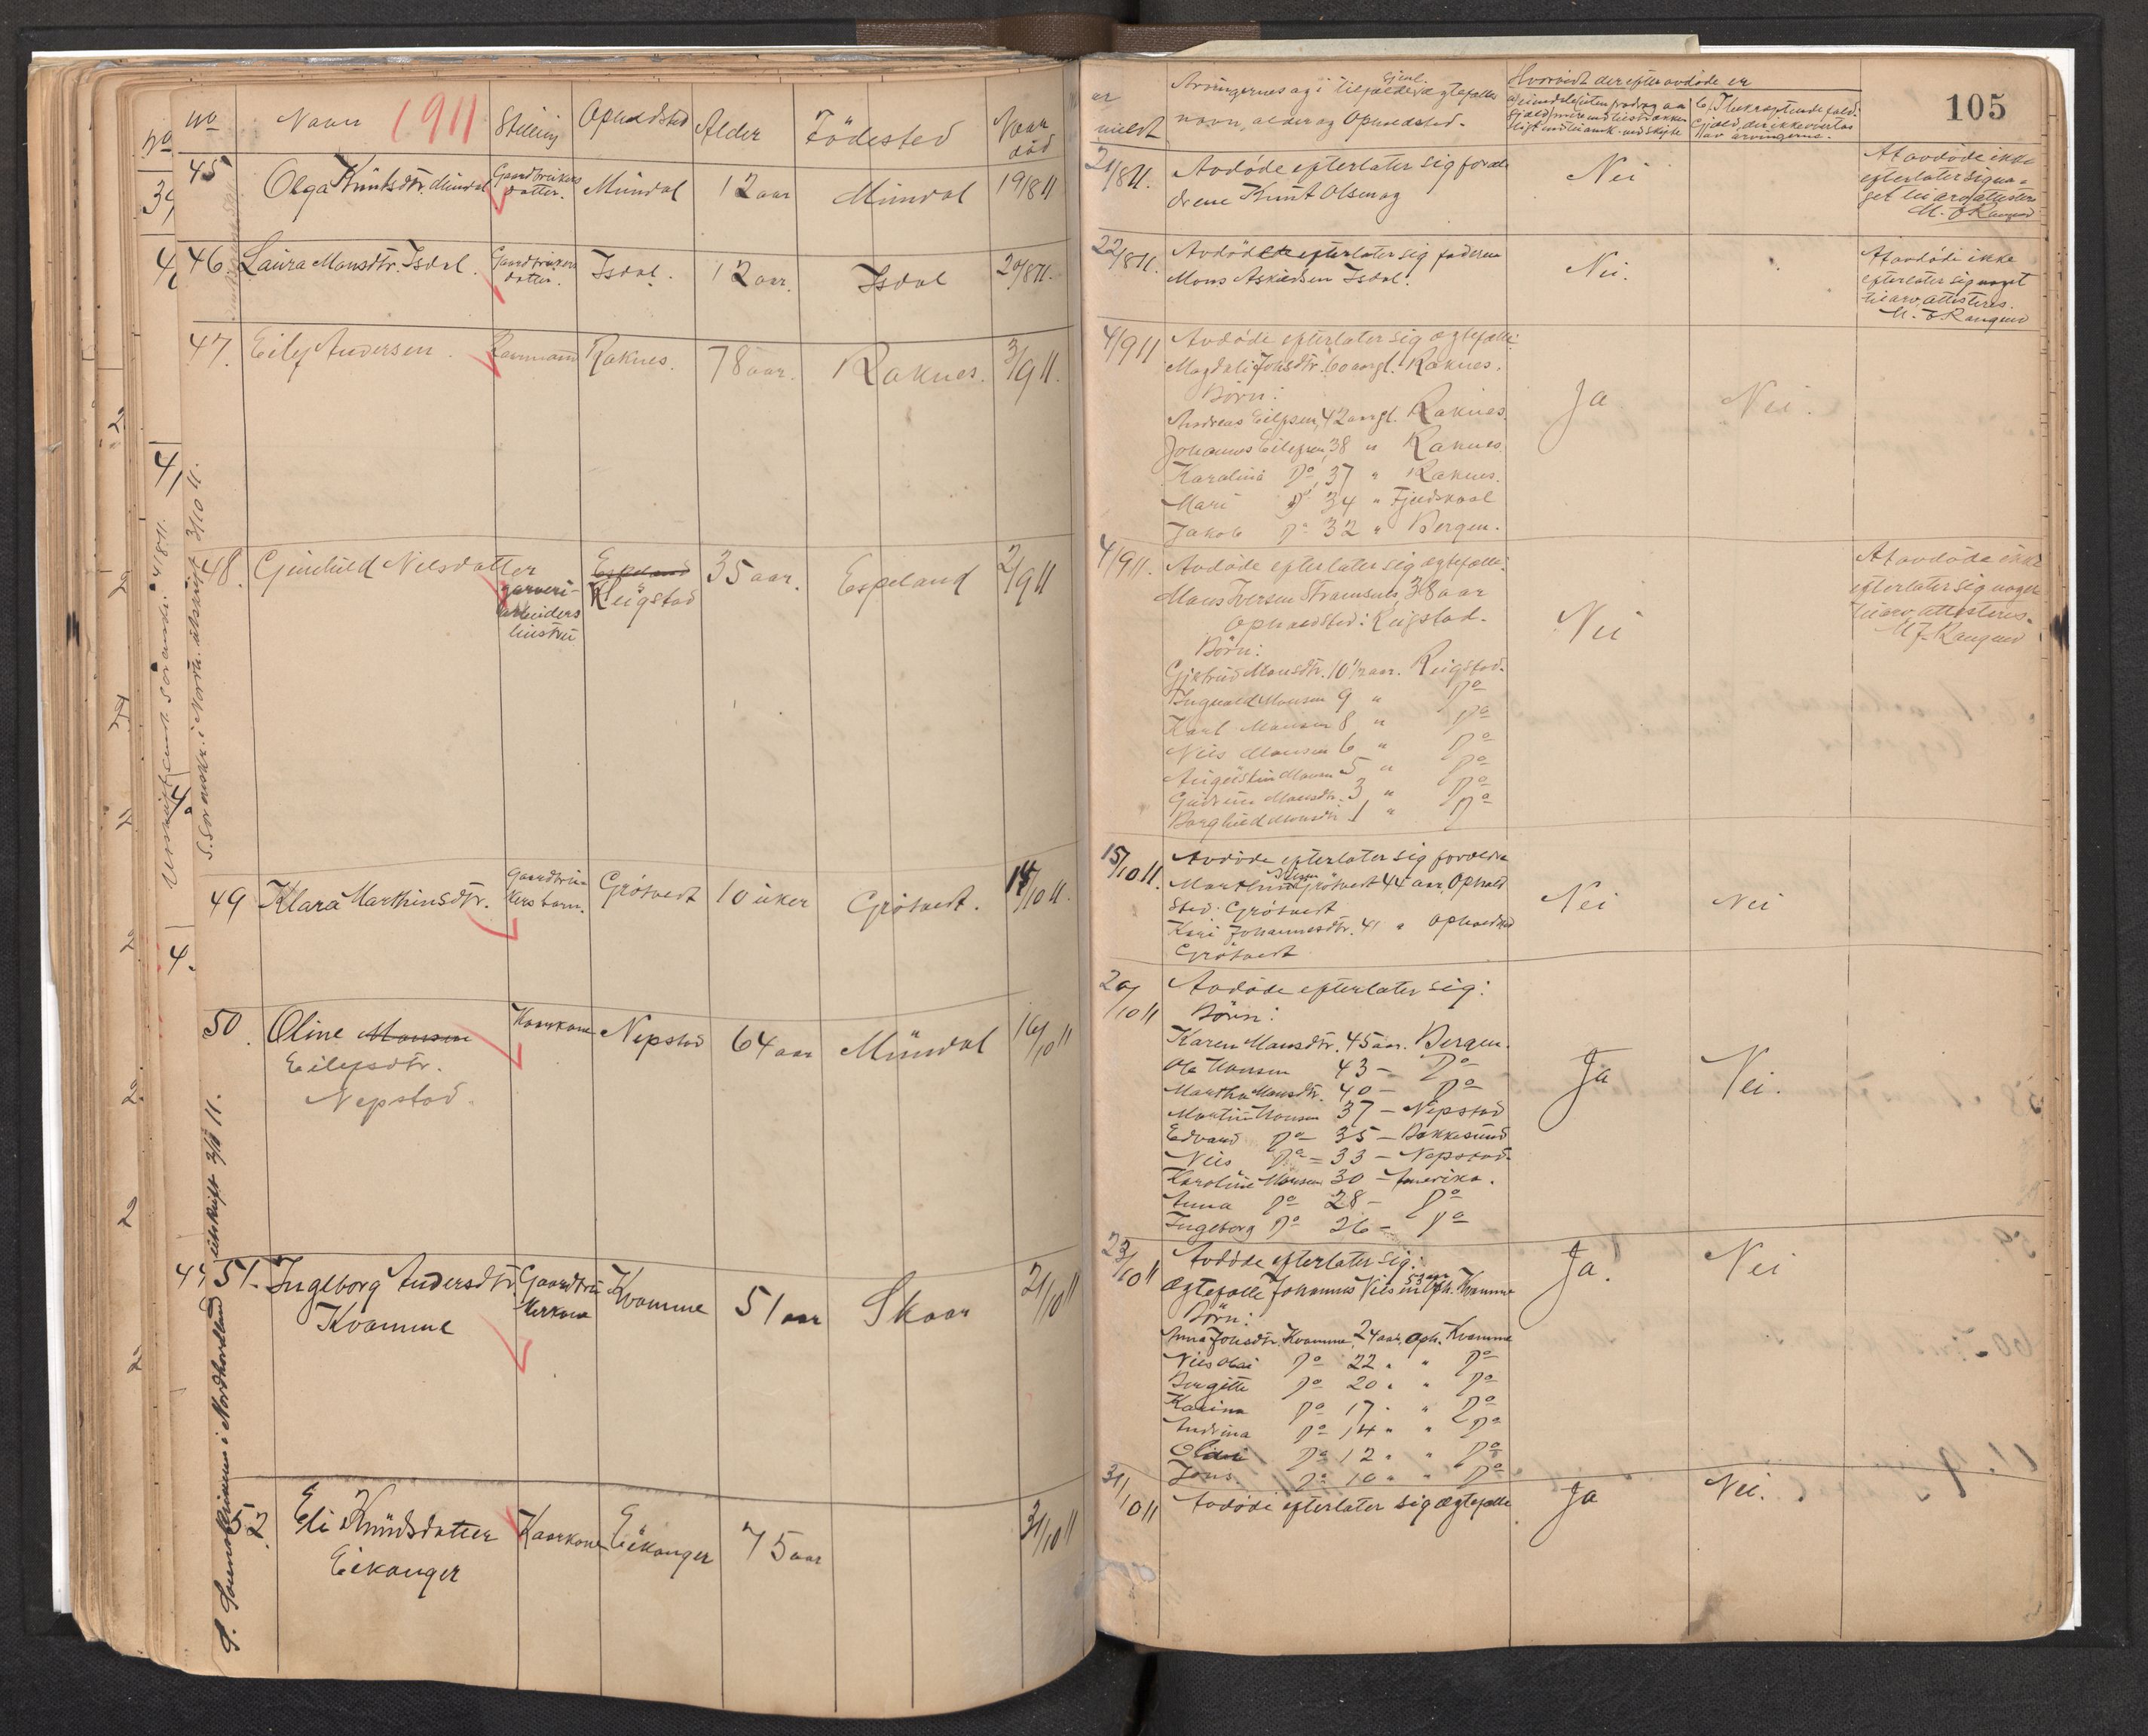 no Navn 1911 Stilling Opholdsted Alder Födested Naar död
45 Olga Knutsdtr. Mundal Gaardbrukers datter. Mundal 12 aar Mundal 19/8 11
46. Laura Monsdtr. Isdal. Gaardbrukers datter. Isdal. 12 aar. Isdal 20/8 11.
47. Eilef Andersen. Kaarmand Raknes. 78 aar. Raknes. 3/9 11.
48. Gunhild Nilsdatter garveri-
arbeiders
hustru
Espeland
Reigstad
35 aar. Espeland 2/9 11
49 Klara Marthinsdtr. Gaardbru-
kers barn. Grötvedt 10 uker Grötvedt. 14/10 11.
50. Oline Monsen Kaarkone Nepstad 64 aar Mundal 16/10 11
Eilefsdtr.
Nepstad.
51. Ingeborg Andersdtr. Gaardbru-
kerkone Kvamme 51 aar Skaar 21/10 11
Kvamme
52. Eli Knudsdatter Kaarkone Eikanger 75 aar 31/10 11
Eikanger
S. Sorenskriveren i Nordhordland utskrift 3/10 11.
S. Sorenskr. i Nordh. utskrift 3/10 11.
105
meldt
Arvingernes og i tilfælde egtefælles
navn, alder og Opholdsted.
Hvorvidt der efter avdöde er
21/8 11. Avdöde efterlater sig foræl-
drene Knut Olsen og
Nei
At avdöde ikke
efterlater sig no-
get til arv attesteres
M. J. Rangnes
22/8 11. Avdöde efterlater sig faderen
Mons Askildsen Isdal.
Nei.
At avdöde ikke
efterlater sig noget
til arv, attesteres.
M. J. Rangnes
4/9 11 Avdöde efterlater sig egtefælle:
Magdali Johsdtr. 60 aar gl. Raknes.
Börn:
Andreas Eilefsen, 42 aar gl. Raknes.
Johannes Eilefsen, 38 " Raknes.
Karolina Do, 37 " Raknes.
Mari Do 34 " Fjeldskaal
Jakob Do 32 " Bergen.
Ja Nei.
4/9 11. Avdöde efterlater sig egtefælle:
Mons Iversen Tramsnes, 38 aar
Opholdsted: Reigstad.
Börn:
Gjertrud Monsdtr. 10 1/2 aar. Reigstad.
Ingvald Monsen 9 " Do
Karl Monsen 8 " Do
Nils Monsen 6 " Do
Augustin Monsen 5 " Do
Gudrun Monsdtr. 3 " Do
Borghild Monsdtr. 1 " Do
Nei
At avdöde ikke
efterlater sig noget
til arv attesteres.
M J. Rangnes
15/10 11. Avdöde efterlater sig forældre
Marthin Grötvedt 44 aar, Ophold
sted. Grötvedt
Kari Johannesdtr. 41 " Opholdsted
Grötvedt
Nei Nei
20/10 11 Avdöde efterlater sig:
Börn:
Karen Monsdtr. 45 aar. Bergen.
Ole Monsen 43 - Do
Martha Monsdtr. 40 - Do
Martin Monsen 37 - Nepstad
Edvard Do - 35 - Bakkesund
Nils Do - 33 - Nepstad.
Karoline Monsen 30 - Amerika.
Anna Do 28 - Do
Ingeborg Do 26 - Do
Ja Nei.
23/10 11 Avdöde efterlater sig:
Egtefælle Johannes Nilsen 53 aar Oph. Kvamme
Börn:
Anna Johsdtr. Kvamme, 24 aar, Oph. Kvamme
Nils Olai Do 22 " " Do
Bergitte Do 20 " " Do
Karina Do 17 " " Do
Andrina Do 14 " " Do
Do 12 " " Do
Jons Do 10 " " Do
Ja. Nei
31/10 11 Avdöde efterlater sig egtefælle
Ja Nei.